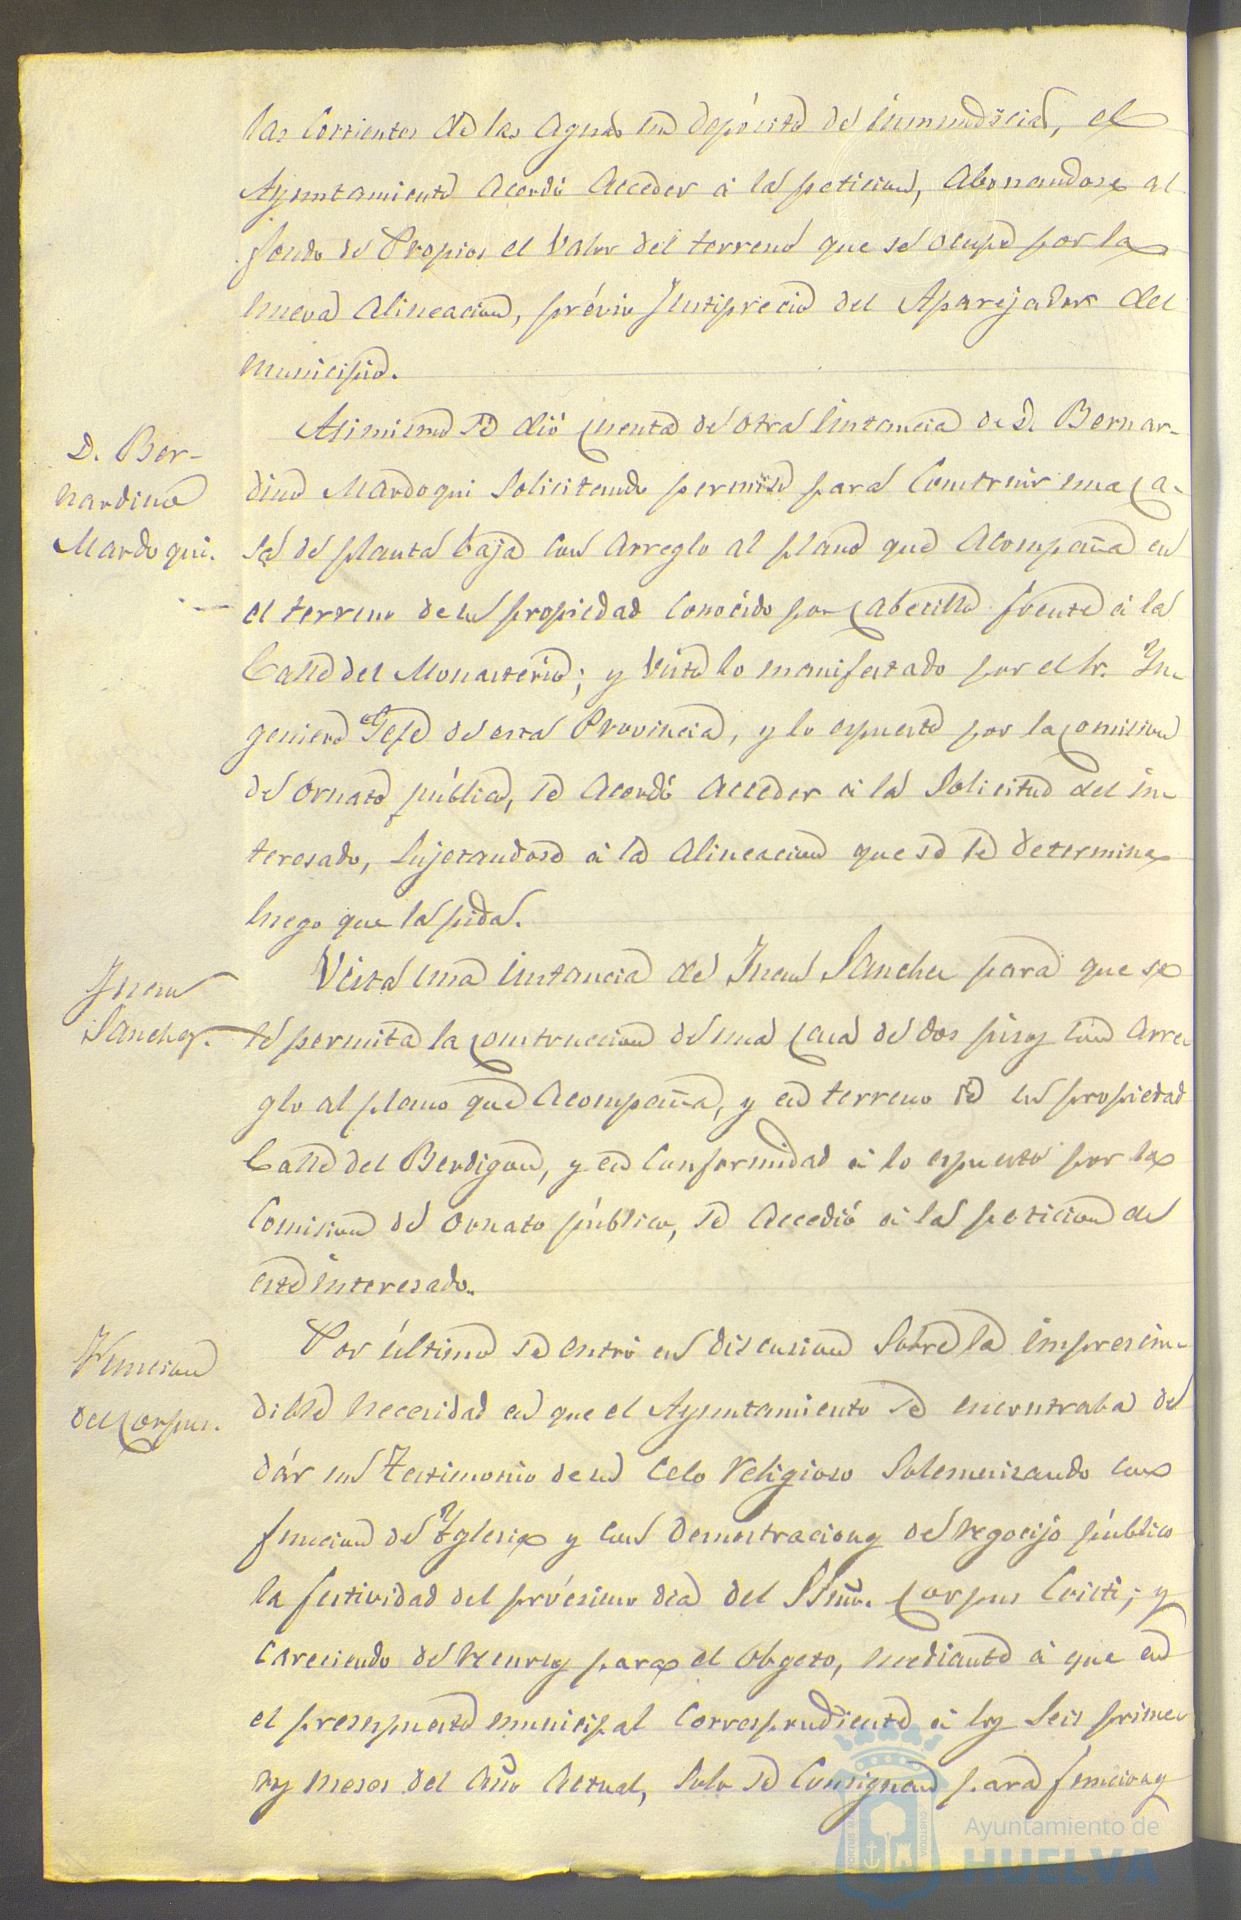 las corrientes de las aguas en depósito de inmundicias, el
Ayuntamiento acordó acceder á la peticion, abonandose al
fondo de Propios el valor del terreno que se ocupe por la
nueva alineacion, prévio justiprecio del Aparejador del
municipio.
D. Ber-
nardino
Mardoqui.
Asimismo se dió cuenta de otra instancia de D. Bernar-
dino Mardoqui solicitando permiso para construir una ca-
sa de planta baja con arreglo al plano que acompaña en
el terreno de su propiedad conocido por Cabecillo frente á la
Calle del Monasterio; y visto lo manifestado por el Sr. Yn-
geniero Gefe de esta Provincia, y lo espuesto por la comision
de ornato público, se acordó acceder á la solicitud del in-
teresado, sujetandose á la alineacion que se le determine
luego que la pida.
Juan
Sanchez.
Vista una instancia de Juan Sanchez para que se
le permita la construccion de una casa de dos pisos con arre-
glo al plano que acompaña, y en terreno de su propiedad
Calle del Berdigon, y en conformidad á lo espuesto por la
Comision de ornato público, se accedió á la peticion de
este interesado.
Funcion
del Corpus.
Por último se entró en discusion sobre la imprescin-
dible necesidad en que el Ayuntamiento se encontraba de
dár un testimonio de su celo religioso solemnizando con
funcion de Yglesia y con demostraciones de regocijo público
la festividad del prócsimo dia del SSmo. Corpus Cristi; y
careciendo de recursos para el obgeto, mediante á que en
el presupuesto municipal correspondiente á los seis prime-
ros meses del año actual, solo se consignan para funciones
Ayuntamiento de
HUELVA